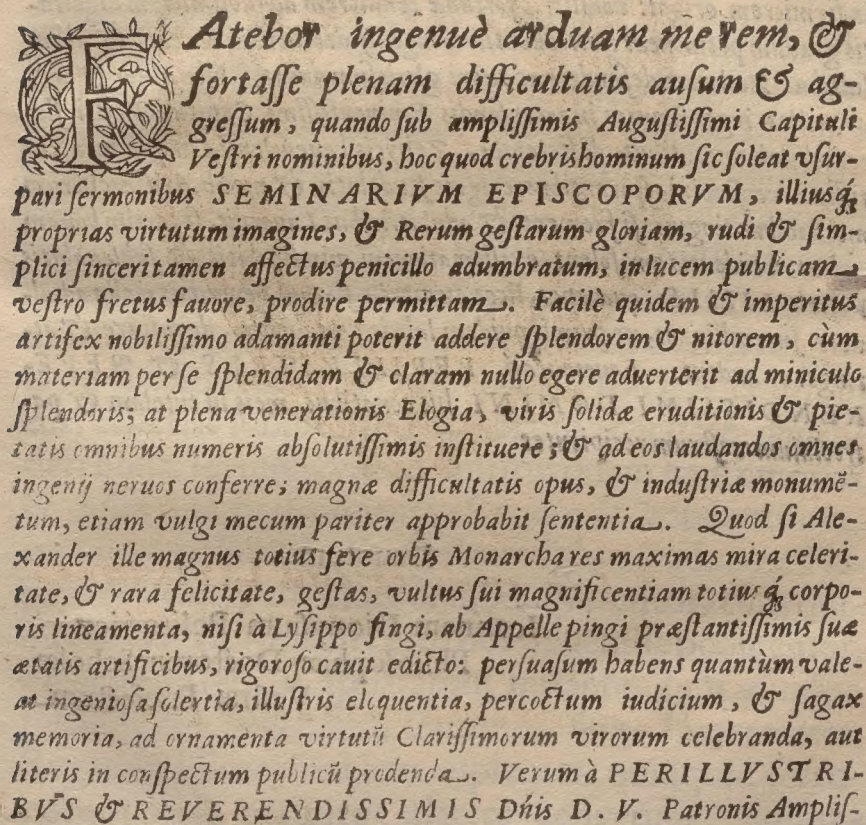 FAtebor ingenuè arduam me rem, &
fortasse plenam difficultatis ausum & ag-
gressum, quando sub amplissimis Augustissimi Capituli
Vestri nominibus, hoc quod crebris hominum sic soleat vsur-
pari sermonibus SEMINARIVM EPISCOPORVM, illiusq́
proprias virtutum imagines, & Rerum gestarum gloriam, rudi & sim-
plici sinceri tamen affectus penicillo adumbratum, in lucem publicam,
vestro fretus fauore, prodire permittam. Facilè quidem & imperitus
artifex nobilissimo adamanti poterit addere splendorem & nitorem, cùm
materiam per se splendidam & claram nullo egere aduerterit ad miniculo
splendoris; at plena venerationis Elogia, viris solidæ eruditionis & pie-
tatis omnibus numeris absolutissimis instituere; & ad eos laudandos omnes
ingenij neruos conferre; magnæ difficultatis opus, & industriæ monumẽ-
tum, etiam vulgi mecum pariter approbabit sententia. Quod si Ale-
xander ille magnus totius fere orbis Monarcha res maximas mira celeri-
tate, & rara felicitate, gestas, vultus sui magnificentiam totiusq́ corpo-
ris lineamenta, nisi à Lysippo fingi, ab Appelle pingi præstantissimis suæ
ætatis artificibus, rigoroso cauit edicto: persuasum habens quantùm vale-
at ingeniosa solertia, illustris eloquentia, percoctum iudicium, & sagax
memoria, ad ornamenta virtutũ Clarissimorum virorum celebranda, aut
literis in conspectum publicũ prodenda. Verum à PERILLVSTRI-
BVS & REVERENDISSIMIS Dńis D. V. Patronis Amplis-